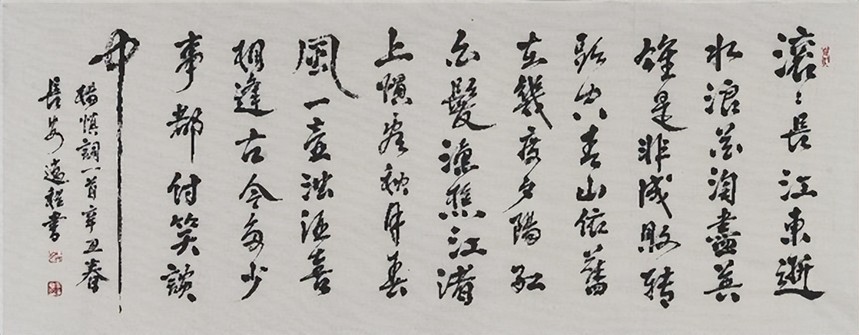 滚〻長江東逝
水浪花淘盡英
雄是非成敗转
頭空青山依舊
在幾度夕陽紅
白髮漁樵江渚
上慣看秋月春
風一壺濁酒喜
相逢古今多少
事都付笑談
中
楊慎詞一首辛丑春
長安遠程書